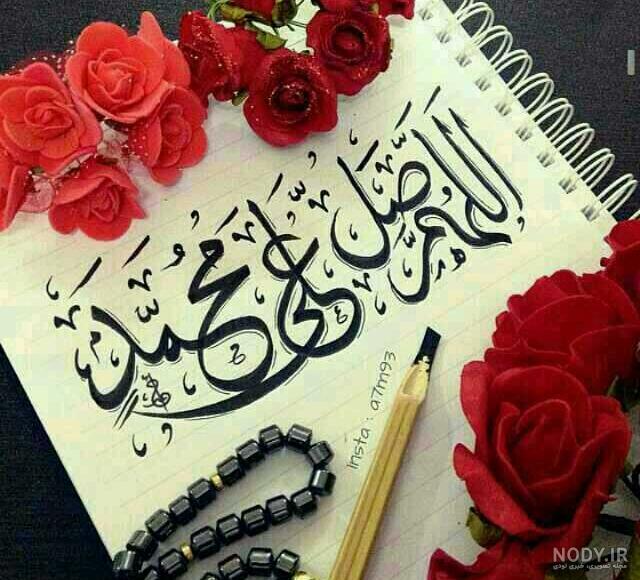 اللهم صل على محمد
Insta : a7m93
NODY.IR
مجله تصویری، خبری نودی